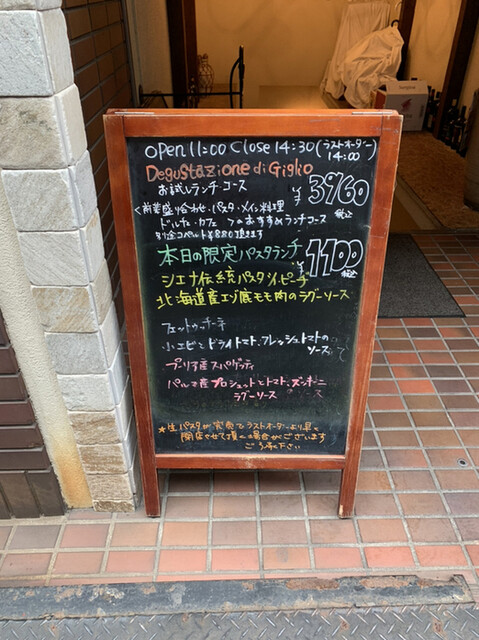 open 11:00 Close 14:30 (ラストオーダー 14:00)
Degustazione di Giglio
お試しランチコース ¥3960 税込
く前菜盛り合わせ・パスタ・メイン料理
ドルチェ・カフェ つのおすすめランチコース
別途コペルト¥880頂きます
本日の限定パスタランチ ¥1100 税込
シエナ伝統パスタ ピーチ
北海道産エゾ鹿もも肉のラグーソース
フェットゥチーネ
小エビとドライトマト、フレッシュトマトのソース
プーリア産スパゲッティ
パルマ産プロシュットとトマト、ズッキーニ
ラグーソース
★生パスタが完売でラストオーダーより早く
閉店させて頂く場合がございます
ご了承下さい